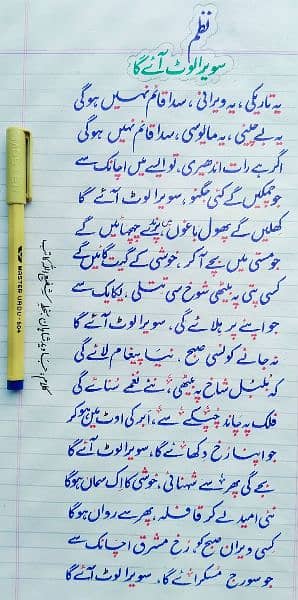 نظم
سویرا لوٹ آئے گا
یہ تاریکی، یہ ویرانی، سدا قائم نہیں ہوگی
یہ بے چینی، یہ مایوسی، سدا قائم نہیں ہوگی
اگر ہے رات اندھیری، تو ایسے میں اچانک سے
جو چمکیں گے کئی جگنو، سویرا لوٹ آئے گا
کھلیں گے پھول باغوں میں پرندے چہچہائیں گے
جو مستی میں بچے آ کر، خوشی کے گیت گائیں گے
کسی پتی پہ بیٹھی شوخ سی تتلی، یکایک سے
جو اپنے پر ہلائے گی، سویرا لوٹ آئے گا
نہ جانے کونسی صبح، نیا پیغام لائے گی
کہ بلبل شاخ پہ بیٹھی، نئے نغمے سنائے گی
فلک پہ چاند چپکے سے، ابر کی اوٹ میں ہو کر
جو اپنا رخ دکھائے گا، سویرا لوٹ آئے گا
بجے گی پھر سے شہنائی، خوشی کا اک سماں ہوگا
نئی امید لے کر قافلہ، پھر سے رواں ہوگا
کسی ویران صبح کو، رخ مشرق اچانک سے
جو سورج مسکرائے گا، سویرا لوٹ آئے گا
MASTER URDU-604